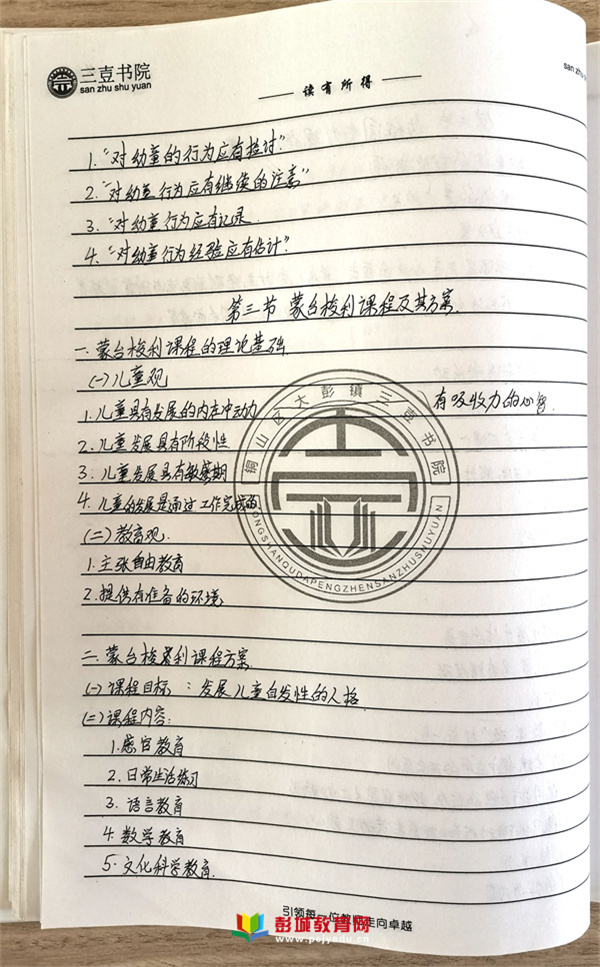 三壹书院
san zhu shu yuan
读有所得
san zhu
1. “对幼童的行为应有检讨”
2. “对幼童行为应有继续的注意”
3. “对幼童行为应有记录
4. “对幼童行为经验应有估计”
第三节 蒙台梭利课程及其方案.
一. 蒙台梭利课程的理论基础
(一)儿童观
1. 儿童具有发展的内在冲动力 有吸收力的心智.
2. 儿童发展具有阶段性
3. 儿童发展具有敏感期
4. 儿童的发展是通过工作完成的.
(二)教育观.
1. 主张自由教育
2. 提供有准备的环境.
铜山区大彭镇三壹书院
TONGSHANQUDAPENGZHENSANZHUSHUYUAN
二. 蒙台梭利课程方案.
(一)课程目标 : 发展儿童自发性的人格.
(二)课程内容:
1. 感官教育
2. 日常生活练习
3. 语言教育
4. 数学教育
5. 文化科学教育.
引领每一位教师走向卓越
彭城教育网
www.pcjyedu.cn